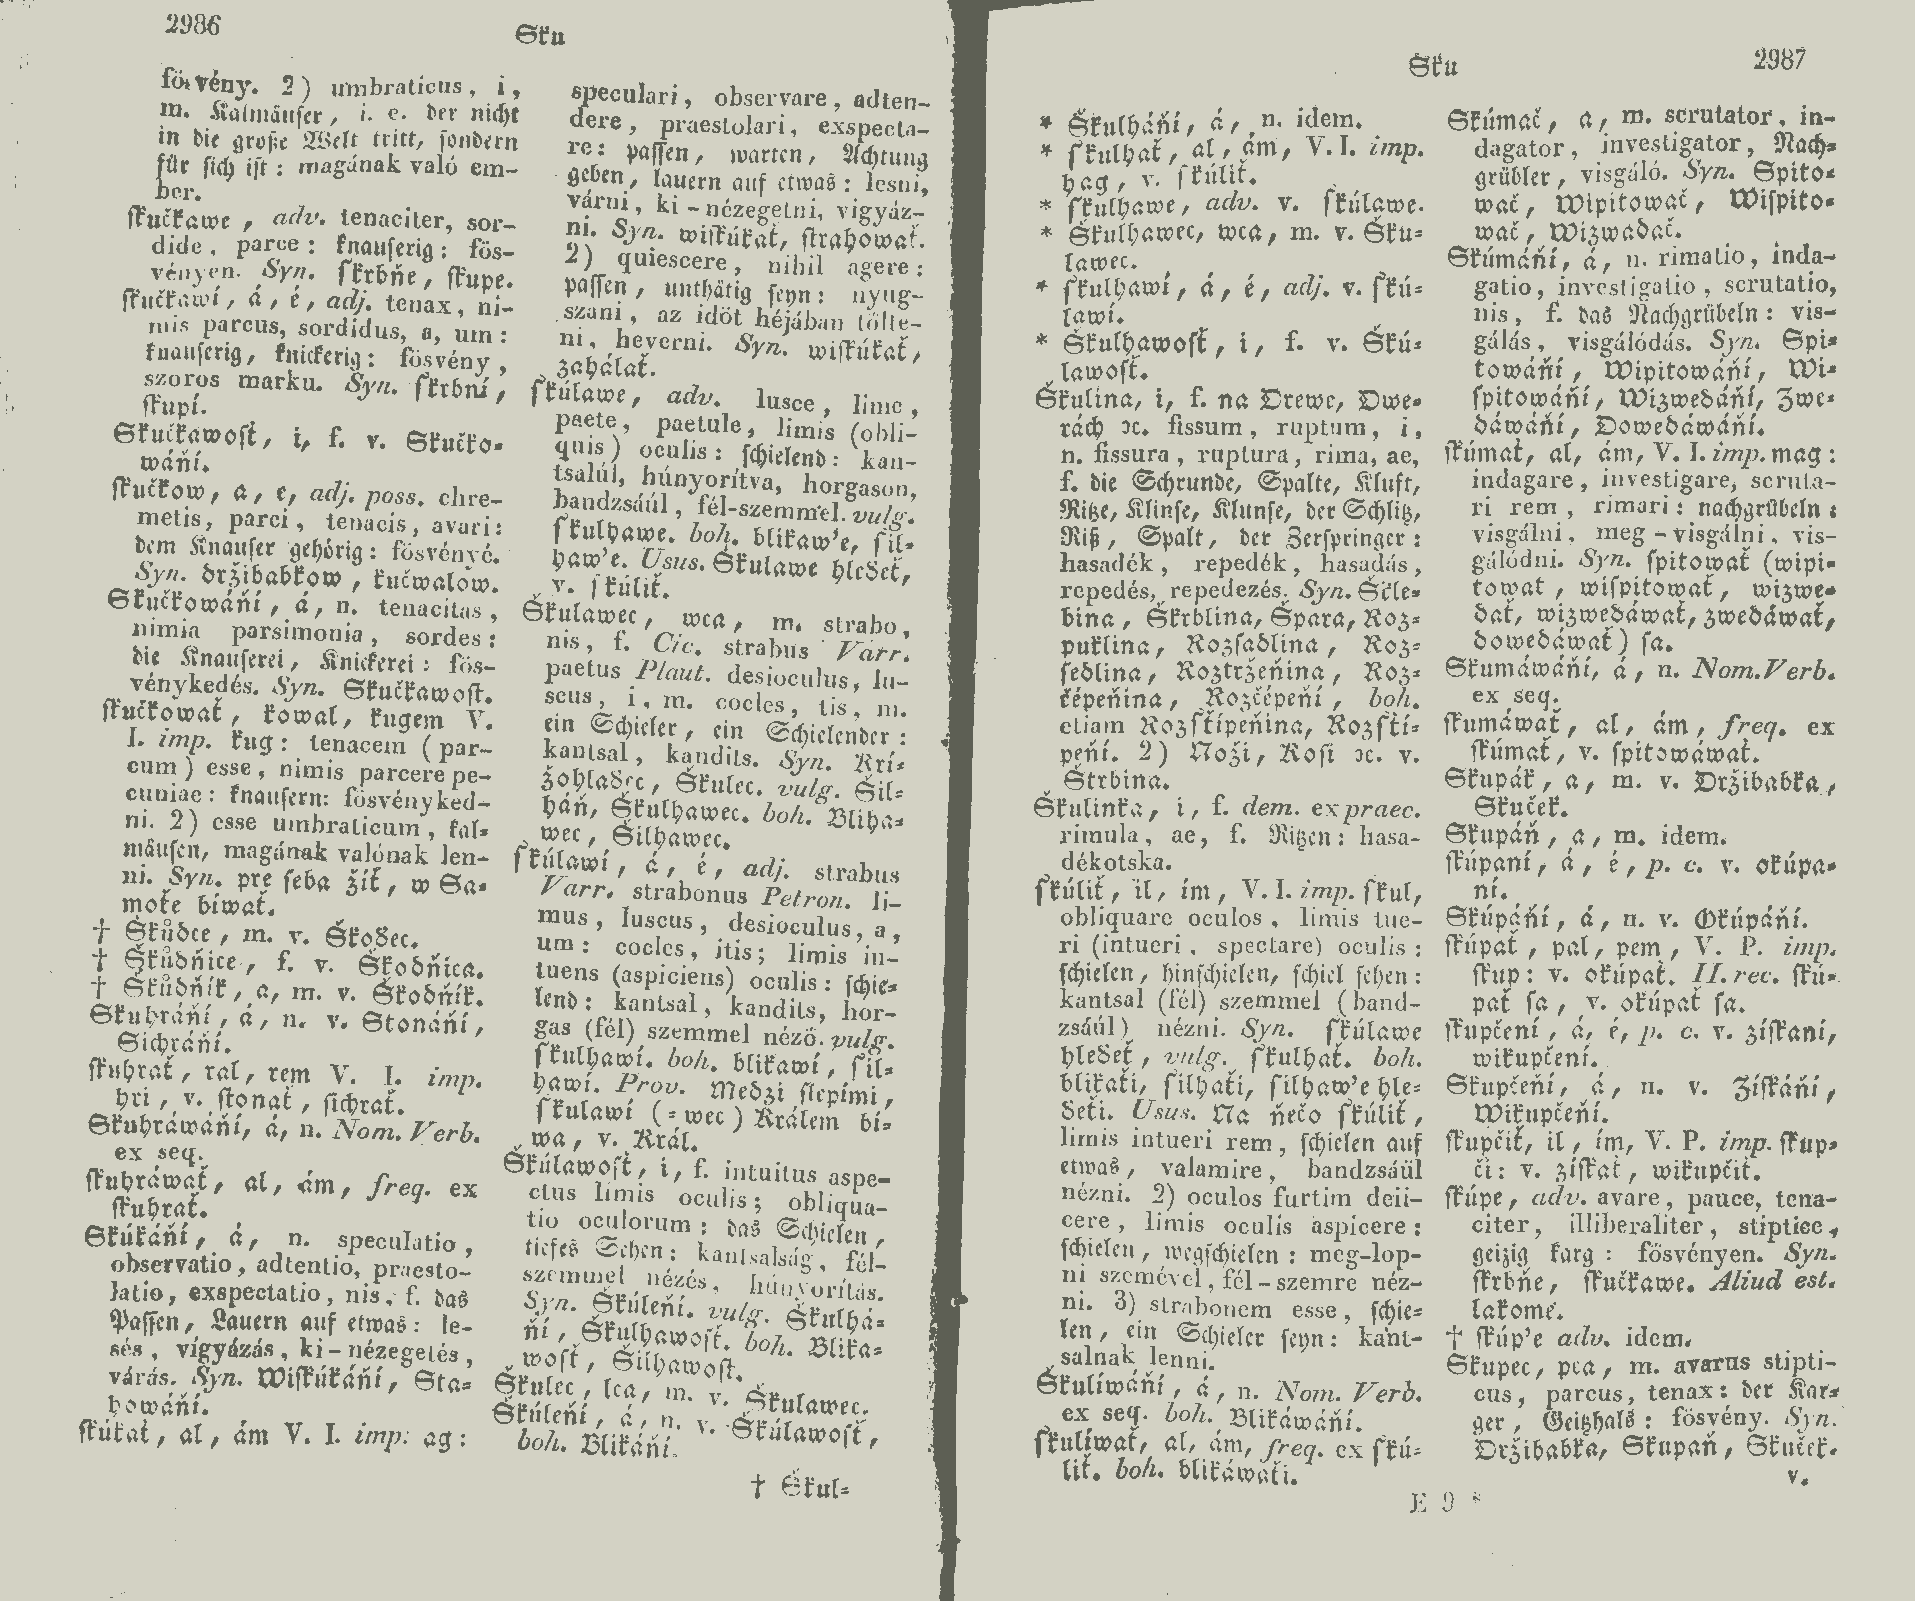 2986
Sku
fösvény. 2) umbraticus, i,
m. Kalmäuser, i. e. der nicht
in die große Welt tritt, sondern
für sich ist: magának való em-
ber.
skučkawe, adv. tenaciter, sor-
dide, parce: knauserig: fös-
vényen. Syn. skrbňe, skupe.
skučkawí, á, é, adj. tenax, ni-
mis parcus, sordidus, a, um:
knauserig, knickerig: fösvény,
szoros marku. Syn. skrbní,
skupí.
Skučkawosť, i, f. v. Skučko-
wáňí.
skučkow, a, e, adj. poss. chre-
metis, parci, tenacis, avari:
dem Knauser gehörig: fösvényé.
Syn. držibabkow, kučwalow.
Skučkowáňí, á, n. tenacitas,
nimia parsimonia, sordes:
die Knauserei, Knickerei: fös-
vénykedés. Syn. Skučkawosť.
skučkowať, kowal, kugem V.
I. imp. kug: tenacem (par-
cum) esse, nimis parcere pe-
cuniae: knausern: fösvényked-
ni. 2) esse umbraticum, kal-
mäusen, magának valónak len-
ni. Syn. pre seba žíť, w Sa-
moťe bíwať.
† Škůdce, m. v. Škodec.
† Škůdňice, f. v. Škodňica.
† Škůdňík, a, m. v. Škodňík.
Skuhráňí, á, n. v. Stonáňí,
Sichráňí.
skuhrať, ral, rem V. I. imp.
hri, v. stonať, sichrať.
Skuhráwáňí, á, n. Nom. Verb.
ex seq.
skuhráwať, al, ám, freq. ex
skuhrať.
Skúkáňí, á, n. speculatio,
observatio, adtentio, praesto-
latio, exspectatio, nis, f. das
Passen, Lauern auf etwas: le-
sés, vígyázás, ki-nézegelés,
várás. Syn. Wiskúkáňí, Sta-
howáňí.
skúkať, al, ám V. I. imp: ag:
speculari, observare, adten-
dere, praestolari, exspecta-
re: passen, warten, Achtung
geben, lauern auf etwas: lesni,
várni, ki-nézegetni, vigyáz-
ni. Syn. wiskúkať, strahowať.
2) quiescere, nihil agere:
passen, unthätig seyn: nyug-
szani, az idöt héjában tölte-
ni, heverni. Syn. wiskúkať,
zahálať.
skúlawe, adv. lusce, lime,
paete, paetule, limis (obli-
quis) oculis: schielend: kan-
tsalúl, húnyorítva, horgason,
bandzsáúl, fél-szemmel. vulg.
skulhawe. boh. blikaw'e, sil-
haw'e. Usus. Škulawe hledeť,
v. skúliť.
Škulawec, wca, m. strabo,
nis, f. Cic. strabus Varr.
paetus Plaut. desioculus, lu-
scus, i, m. cocles, tis, m.
ein Schieler, ein Schielender:
kantsal, kandits. Syn. Krí-
žohladec, Škulec. vulg. Šil-
háň, Škulhawec. boh. Bliha-
wec, Šilhawec.
skúlawí, á, é, adj. strabus
Varr. strabonus Petron. li-
mus, luscus, desioculus, a,
um: cocles, itis; limis in-
tuens (aspiciens) oculis: schie-
lend: kantsal, kandits, hor-
gas (fél) szemmel nézö. vulg.
skulhawí. boh. blikawí, sil-
hawí. Prov. Medzi slepími,
skulawí (=wec) Králem bí-
wa, v. Král.
Škúlawosť, i, f. intuitus aspe-
ctus limis oculis; obliqua-
tio oculorum: das Schielen,
tiefes Sehen: kantsalság, fél-
szemmel nézés, húnyorítás.
Syn. Škúleňí. vulg. Škulhá-
ňí, Škulhawosť. boh. Blika-
wosť, Šilhawosť.
Škulec, lca, m. v. Škulawec.
Škúleňí, á, n. v. Škúlawosť,
boh. Blikáňí.
† Škul-
Sku
2987
* Škulháňí, á, n. idem.
* skulhať, al, ám, V. I. imp.
hag, v. skúliť.
* skulhawe, adv. v. skúlawe.
* Škulhawec, wca, m. v. Šku-
lawec.
* skulhawí, á, é, adj. v. skú-
lawí.
* Škulhawosť, i, f. v. Škú-
lawosť.
Škulina, i, f. na Drewe, Dwe-
rách ꝛc. fissum, ruptum, i,
n. fissura, ruptura, rima, ae,
f. die Schrunde, Spalte, Kluft,
Ritze, Klinse, Klunse, der Schlitz,
Riß, Spalt, der Zerspringer:
hasadék, repedék, hasadás,
repedés, repedezés. Syn. Šťle-
bina, Škrblina, Špara, Roz-
puklina, Rozsadlina, Roz-
sedlina, Roztrženina, Roz-
čépeňina, Rozčépeňí, boh.
etiam Rozštípeňina, Rozští-
peňí. 2) Noži, Kosi ꝛc. v.
Štrbina.
Škulinka, i, f. dem. ex praec.
rimula, ae, f. Ritzen: hasa-
dékotska.
skúliť, il, ím, V. I. imp. skul,
obliquare oculos, limis tue-
ri (intueri, spectare) oculis:
schielen, hinschielen, schiel sehen:
kantsal (fél) szemmel (band-
zsáúl) nézni. Syn. skúlawe
hledeť, vulg. skulhať. boh.
blikaťi, silhaťi, silhaw'e hle-
deťi. Usus. Na ňečo skúliť,
limis intueri rem, schielen auf
etwas, valamire, bandzsáül
nézni. 2) oculos furtim deii-
cere, limis oculis aspicere:
schielen, wegschielen: meg-lop-
ni szemével, fél-szemre néz-
ni. 3) strabonem esse, schie-
len, ein Schieler seyn: kant-
salnak lenni.
Škulíwáňí, á, n. Nom. Verb.
ex seq. boh. Blikáwáňí.
skulíwať, al, ám, freq. ex skú-
liť. boh. blikáwaťi.
Skúmač, a, m. scrutator, in-
dagator, investigator, Nach-
grübler, visgáló. Syn. Spito-
wač, Wipitowač, Wispito-
wač, Wizwadač.
Skúmáňí, á, n. rimatio, inda-
gatio, investigatio, scrutatio,
nis, f. das Nachgrübeln: vis-
gálás, visgálódás. Syn. Spi-
towáňí, Wipitowáňí, Wi-
spitowáňí, Wizwedáňí, Zwe-
dáwáňí, Dowedáwáňí.
skúmať, al, ám, V. I. imp. mag:
indagare, investigare, scruta-
ri rem, rimari: nachgrübeln:
visgálni, meg-visgálni, vis-
gálódni. Syn. spitowať (wipi-
towať, wispitowať, wizwe-
dať, wizwedáwať, zwedáwať,
dowedáwať) sa.
Skumáwáňí, á, n. Nom. Verb.
ex seq.
skumáwať, al, ám, freq. ex
skúmať, v. spitowáwať.
Skupák, a, m. v. Držibabka,
Skuček.
Skupáň, a, m. idem.
skúpaní, á, é, p. c. v. okúpa-
ní.
Skúpáňí, á, n. v. Okúpáňí.
skúpať, pal, pem, V. P. imp.
skup: v. okúpať. II. rec. skú-
pať sa, v. okúpať sa.
skupčení, á, é, p. c. v. získaní,
wikupčení.
Skupčeňí, á, n. v. Získáňí,
Wikupčeňí.
skupčiť, il, ím, V. P. imp. skup-
či: v. získať, wikupčiť.
skúpe, adv. avare, pauce, tena-
citer, illiberaliter, stiptice,
geizig karg: fösvényen. Syn.
skrbňe, skučkawe. Aliud est.
lakomě.
† skúp'e adv. idem.
Skupec, pca, m. avarus stipti-
cus, parcus, tenax: der Kar-
ger, Geitzhals: fösvény. Syn.
Držibabka, Skupaň, Skuček.
v.
E 9 *